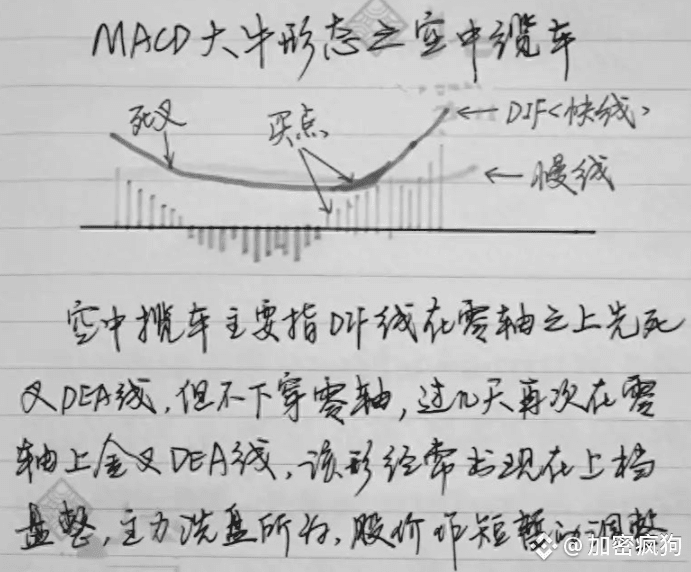 MACD大牛形态之空中缆车
死叉
买点
DIF<快线>
慢线
空中揽车主要指DIF线在零轴之上先死
叉DEA线,但不下穿零轴,过几天再次在零
轴上金叉DEA线,该形经常出现在上档
盘整,主力洗盘所为,股价作短暂的调整
@加密疯狗